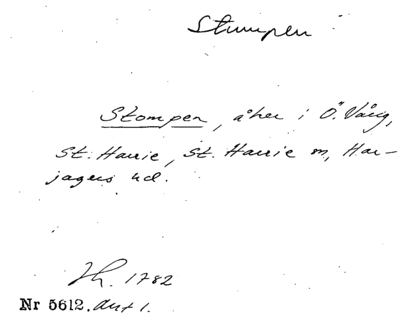 Stumpen
Stompen, åker i Ö. Vång,
St. Harrie, St. Harrie sn, Har-
jagers hd.
Jh. 1782
Nr 5612. Akt 1.